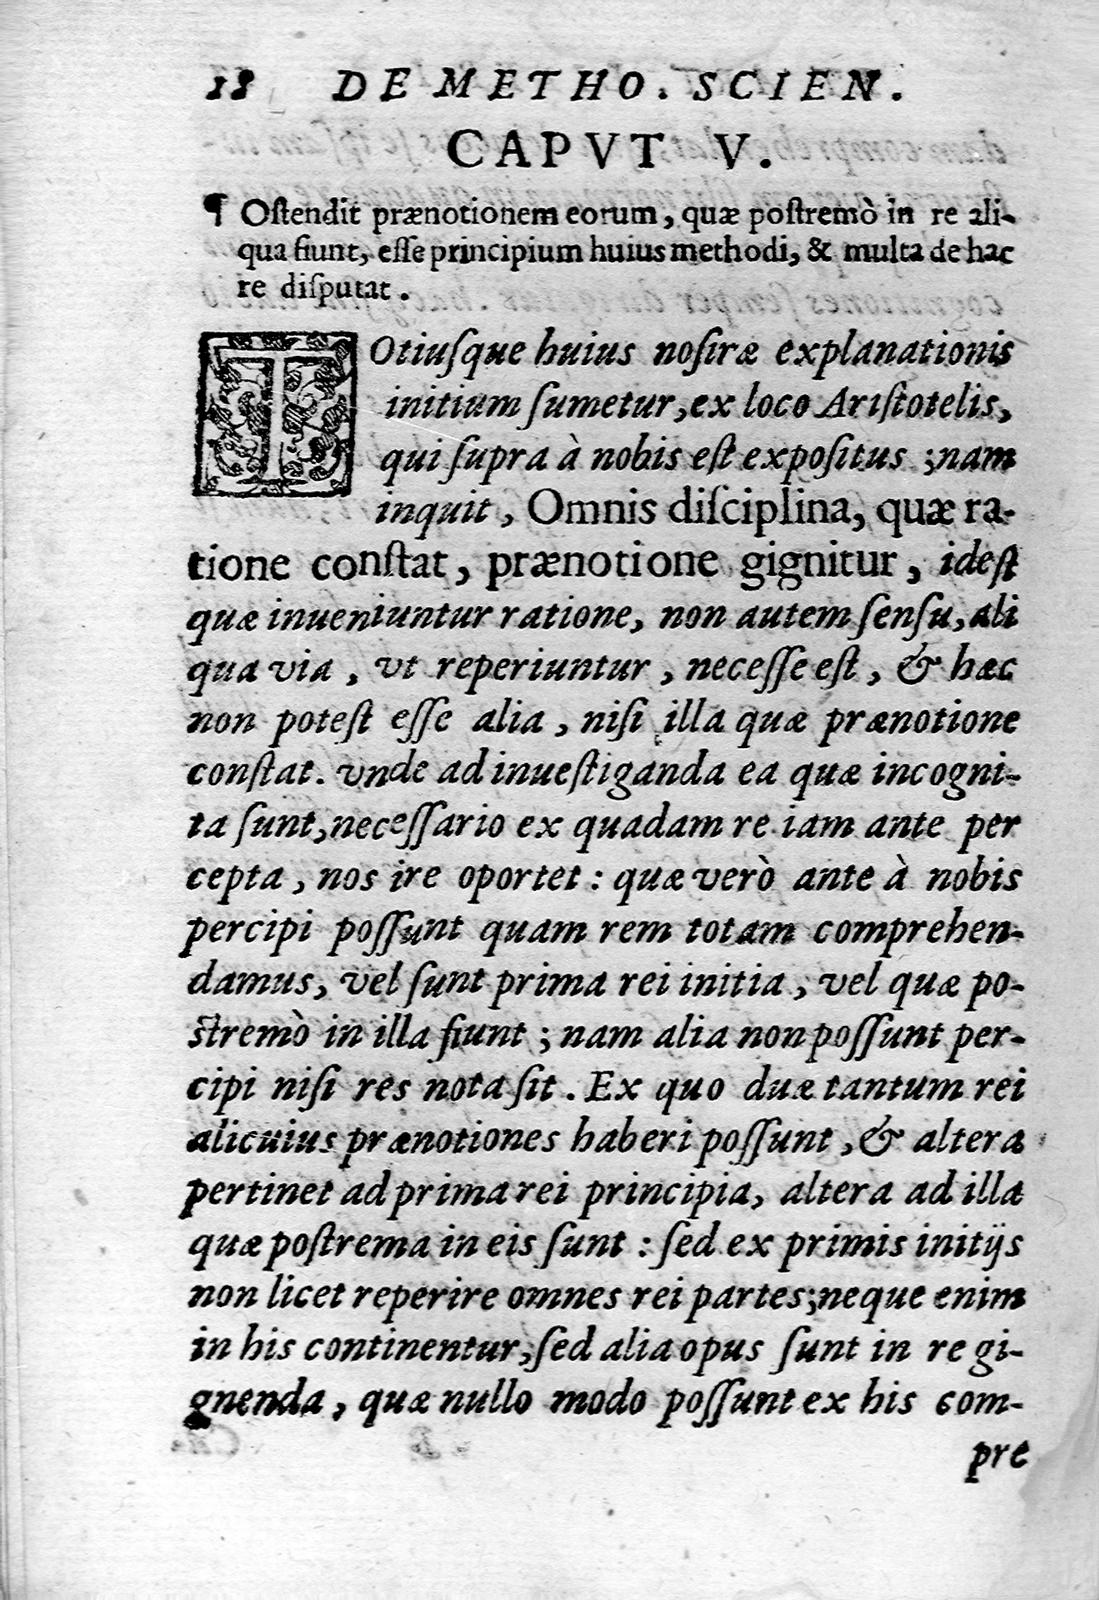 18 DE METHO. SCIEN.
CAPVT V.
¶ Oſtendit prænotionem eorum, quæ poſtremò in re ali-
qua fiunt, eſſe principium huius methodi, & multa de hac
re diſputat.
TOtiuſque huius noſtræ explanationis
initium ſumetur, ex loco Ariſtotelis,
qui ſupra à nobis eſt expoſitus ; nam
inquit, Omnis diſciplina, quæ ra-
tione conſtat, prænotione gignitur, ideſt
quæ inueniuntur ratione, non autem ſenſu, ali
qua via, vt reperiuntur, neceſſe eſt, & hæc
non poteſt eſſe alia, niſi illa quæ prænotione
conſtat. vnde ad inueſtiganda ea quæ incogni-
ta ſunt, neceſſario ex quadam re iam ante per
cepta, nos ire oportet : quæ verò ante à nobis
percipi poſſunt quam rem totam comprehen-
damus, vel ſunt prima rei initia, vel quæ po-
ſtremò in illa fiunt ; nam alia non poſſunt per-
cipi niſi res nota ſit. Ex quo duæ tantum rei
alicuius prænotiones haberi poſſunt, & altera
pertinet ad prima rei principia, altera ad illa
quæ poſtrema in eis ſunt : ſed ex primis initijs
non licet reperire omnes rei partes; neque enim
in his continentur, ſed alia opus ſunt in re gi-
gnenda, quæ nullo modo poſſunt ex his com-
pre